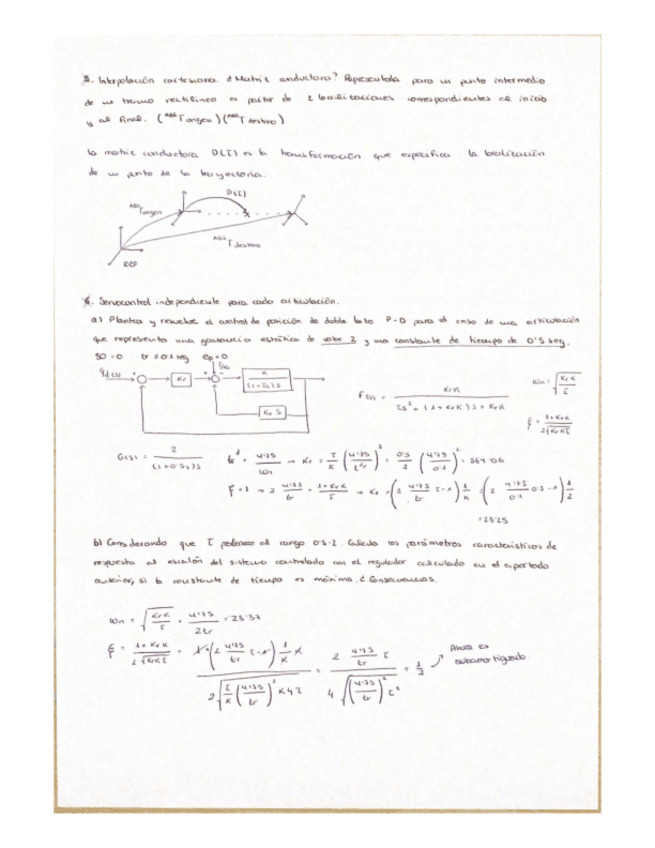 5. Interpolación cartesiana. ¿Matriz conductora? Represéntala para un punto intermedio
de un tramo rectilíneo a partir de 2 localizaciones correspondientes al inicio
y al final. (ᴬᴮˢT origen)(ᴬᴮˢT destino)
La matriz conductora D(τ) es la transformación que especifica la localización
de un punto de la trayectoria.
D(τ)
ᴬᴮˢTorigen
ᴬᴮˢT destino
REF
6. Servocontrol independiente para cada articulación.
a) Plantea y resuelve el control de posición de doble lazo P-D para el caso de una articulación
que representa una ganancia estática de valor 2 y una constante de tiempo de 0'5 seg.
SO=0 tr=0.1 seg ep=0
Kr
K / (1+τs)s
Kv s
F(s) = KrK / (τs² + (1+KvK)s + KrK)
ωn = √(KrK/τ)
ξ = (1+KvK) / (2√(KrKτ))
G(s) = 2 / ((1+0'5s)s)
tr = 4'75/ωn → Kr = τ/K (4'75/tr)² = 0'5/2 (4'75/0.1)² = 564'06
ξ=1 → 2 4'75/tr = (1+KvK)/τ → Kv = (2 4'75/tr τ-1) 1/K = (2 4'75/0.1 0.5-1) 1/2
= 23'25
b) Considerando que τ pertenece al rango 0'5-2. Calcula los parámetros característicos de
respuesta al escalón del sistema controlado con el regulador calculado en el apartado
anterior, si la constante de tiempo es máxima. ¿Consecuencias.
ωn = √(KrK/τ) = 4'75/2tr = 23'37
ξ = (1+KvK) / (2√(KrKτ)) = (1+(2 4'75/tr τ-1) 1/K K) / (2√(τ/K (4'75/tr)² K4τ)) = (2 4'75/tr τ) / (4√((4'75/tr)² τ²)) = 1/2
Ahora es
subamortiguado